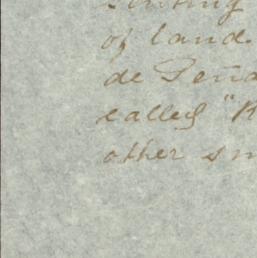 of land.
de Peña
called "R
other sm